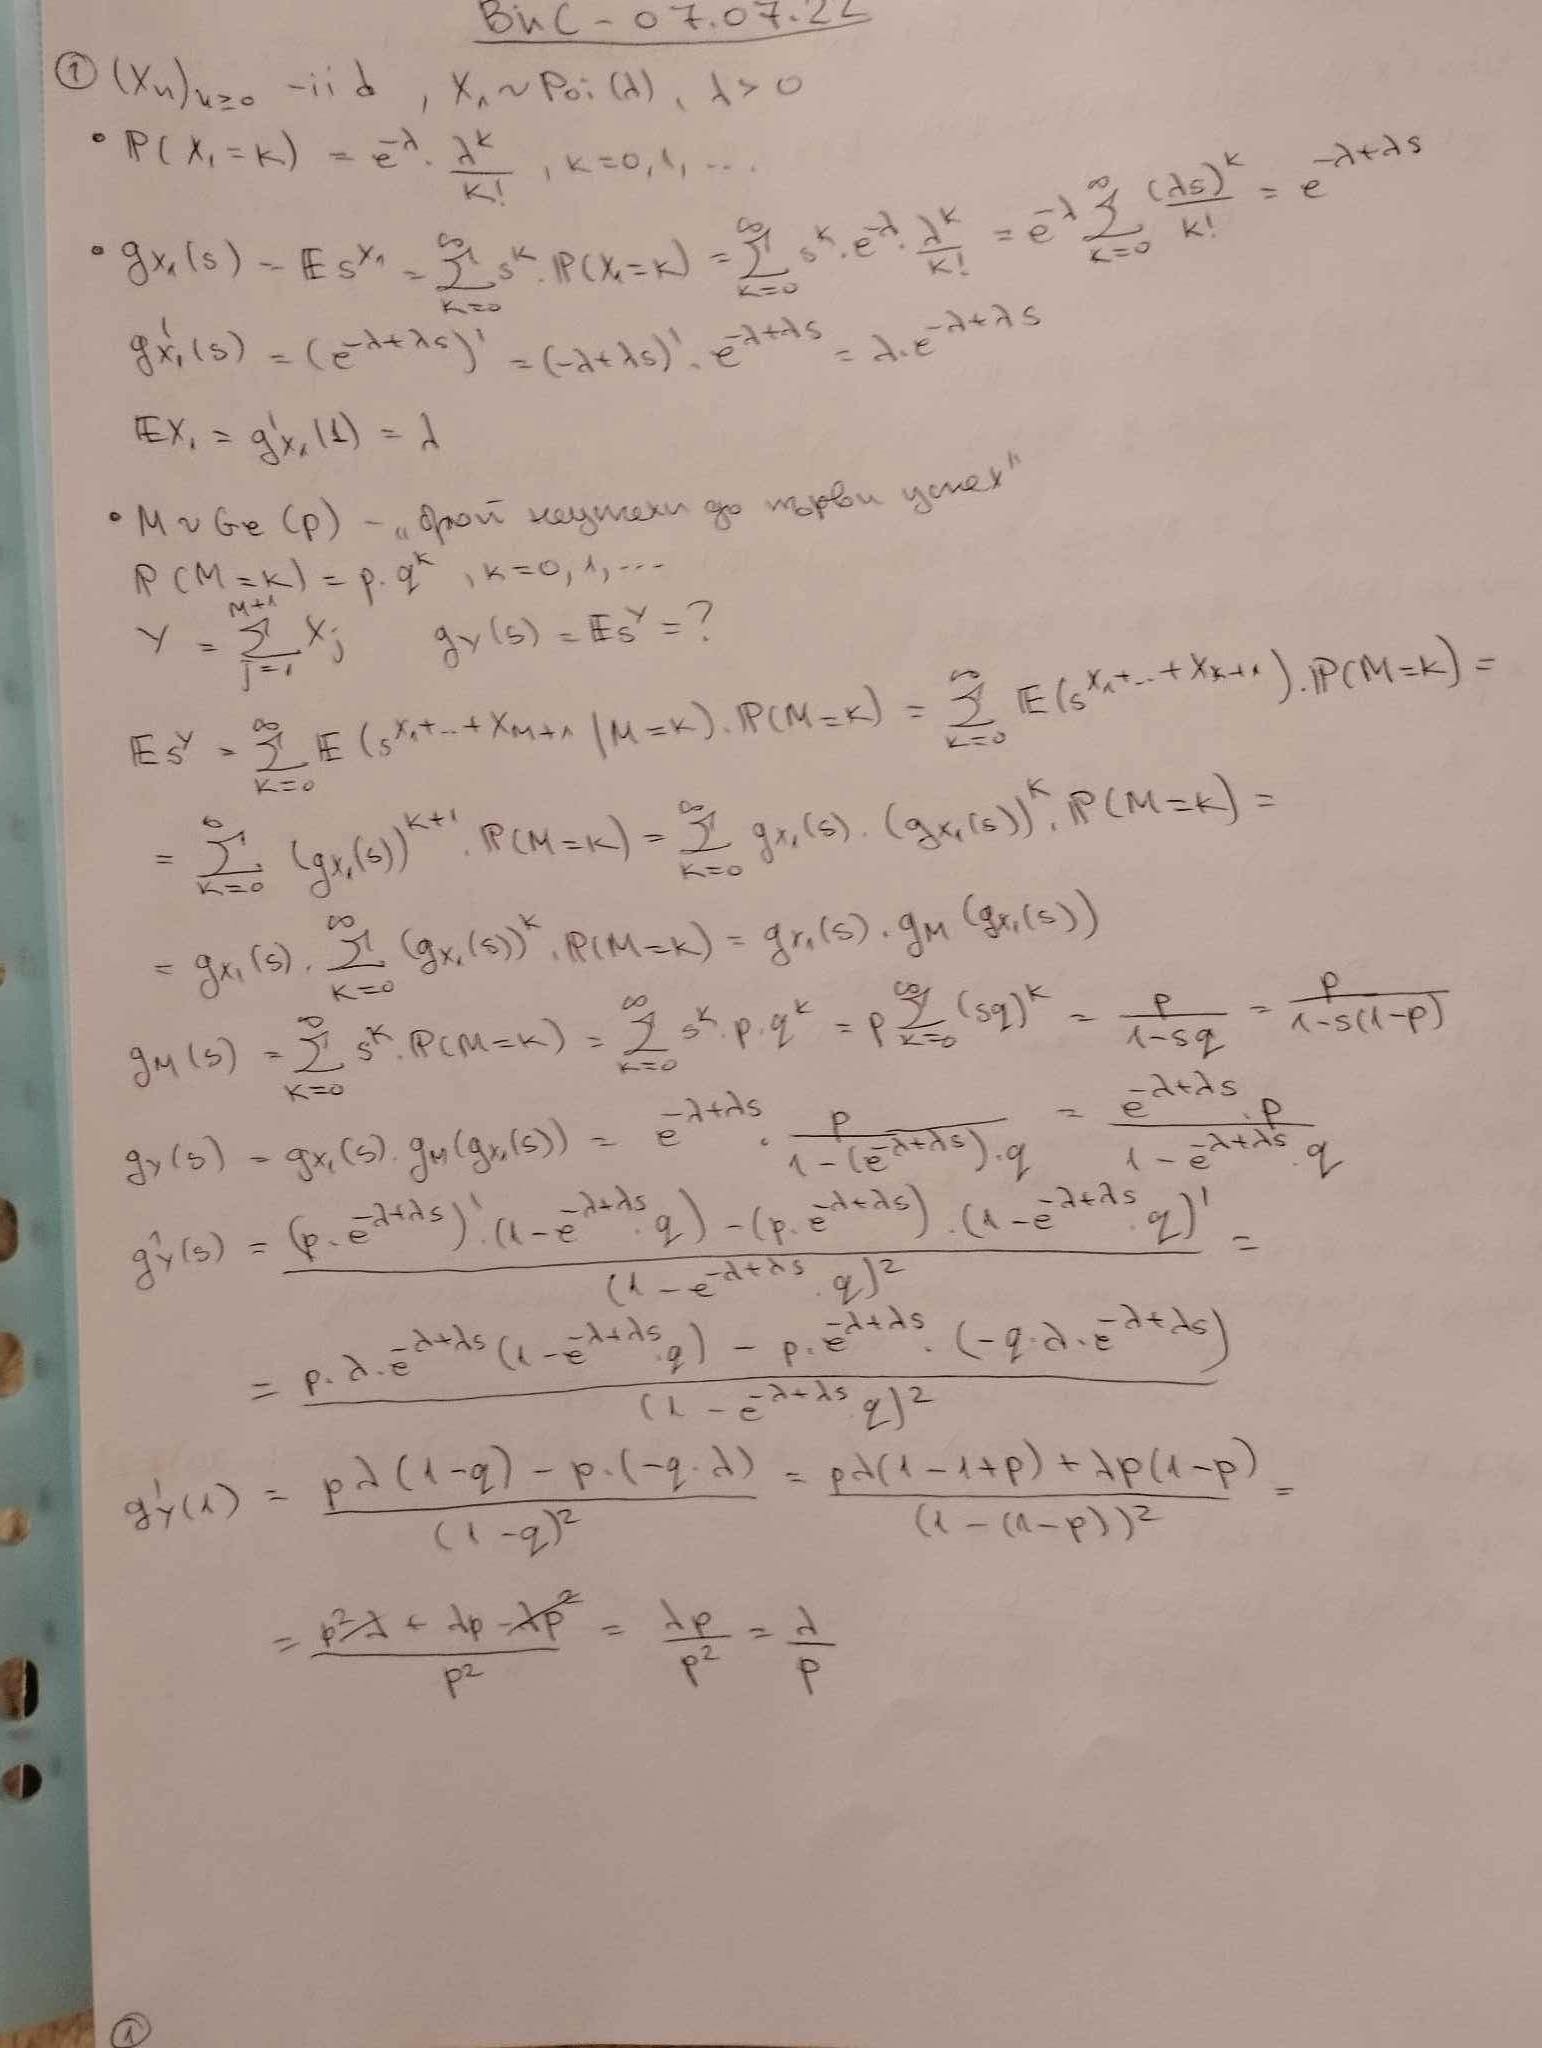 ВиС - 07.07.22
① (Xₙ)ₙ≥₀ - iid , X₁ ~ Poi(λ), λ > 0
• ℙ(X₁ = k) = e^{-λ} . λ^k / k! , k = 0, 1, ...
• g_{X₁}(s) = 𝔼 s^{X₁} = ∑_{k=0}^{∞} s^k . ℙ(X₁ = k) = ∑_{k=0}^{∞} s^k . e^{-λ} . λ^k / k! = e^{-λ} ∑_{k=0}^{∞} (λs)^k / k! = e^{-λ+λs}
g'_{X₁}(s) = (e^{-λ+λs})' = (-λ+λs)' . e^{-λ+λs} = λ . e^{-λ+λs}
𝔼X₁ = g'_{X₁}(1) = λ
• M ~ Ge(p) - „брой неуспехи до първи успех“
ℙ(M = k) = p . q^k , k = 0, 1, ...
Y = ∑_{j=1}^{M+1} X_j   g_Y(s) = 𝔼s^Y = ?
𝔼s^Y = ∑_{k=0}^{∞} 𝔼(s^{X₁+...+X_{M+1}} | M = k) . ℙ(M = k) = ∑_{k=0}^{∞} 𝔼(s^{X₁+...+X_{k+1}}) . ℙ(M = k) =
= ∑_{k=0}^{∞} (g_{X₁}(s))^{k+1} . ℙ(M = k) = ∑_{k=0}^{∞} g_{X₁}(s) . (g_{X₁}(s))^k . ℙ(M = k) =
= g_{X₁}(s) . ∑_{k=0}^{∞} (g_{X₁}(s))^k . ℙ(M = k) = g_{X₁}(s) . g_M(g_{X₁}(s))
g_M(s) = ∑_{k=0}^{∞} s^k . ℙ(M = k) = ∑_{k=0}^{∞} s^k . p . q^k = p ∑_{k=0}^{∞} (sq)^k = p / (1 - sq) = p / (1 - s(1-p))
g_Y(s) = g_{X₁}(s) . g_M(g_{X₁}(s)) = e^{-λ+λs} . p / (1 - (e^{-λ+λs}) . q) = e^{-λ+λs} . p / (1 - e^{-λ+λs} . q)
g'_Y(s) = ((p . e^{-λ+λs})' . (1 - e^{-λ+λs} . q) - (p . e^{-λ+λs}) . (1 - e^{-λ+λs} . q)') / (1 - e^{-λ+λs} . q)² =
= (p . λ . e^{-λ+λs} (1 - e^{-λ+λs} . q) - p . e^{-λ+λs} . (-q . λ . e^{-λ+λs})) / (1 - e^{-λ+λs} . q)²
g'_Y(1) = (pλ(1-q) - p . (-q . λ)) / (1-q)² = (pλ(1-1+p) + λp(1-p)) / (1-(1-p))² =
= (p²λ + λp - λp²) / p² = λp / p² = λ / p
①